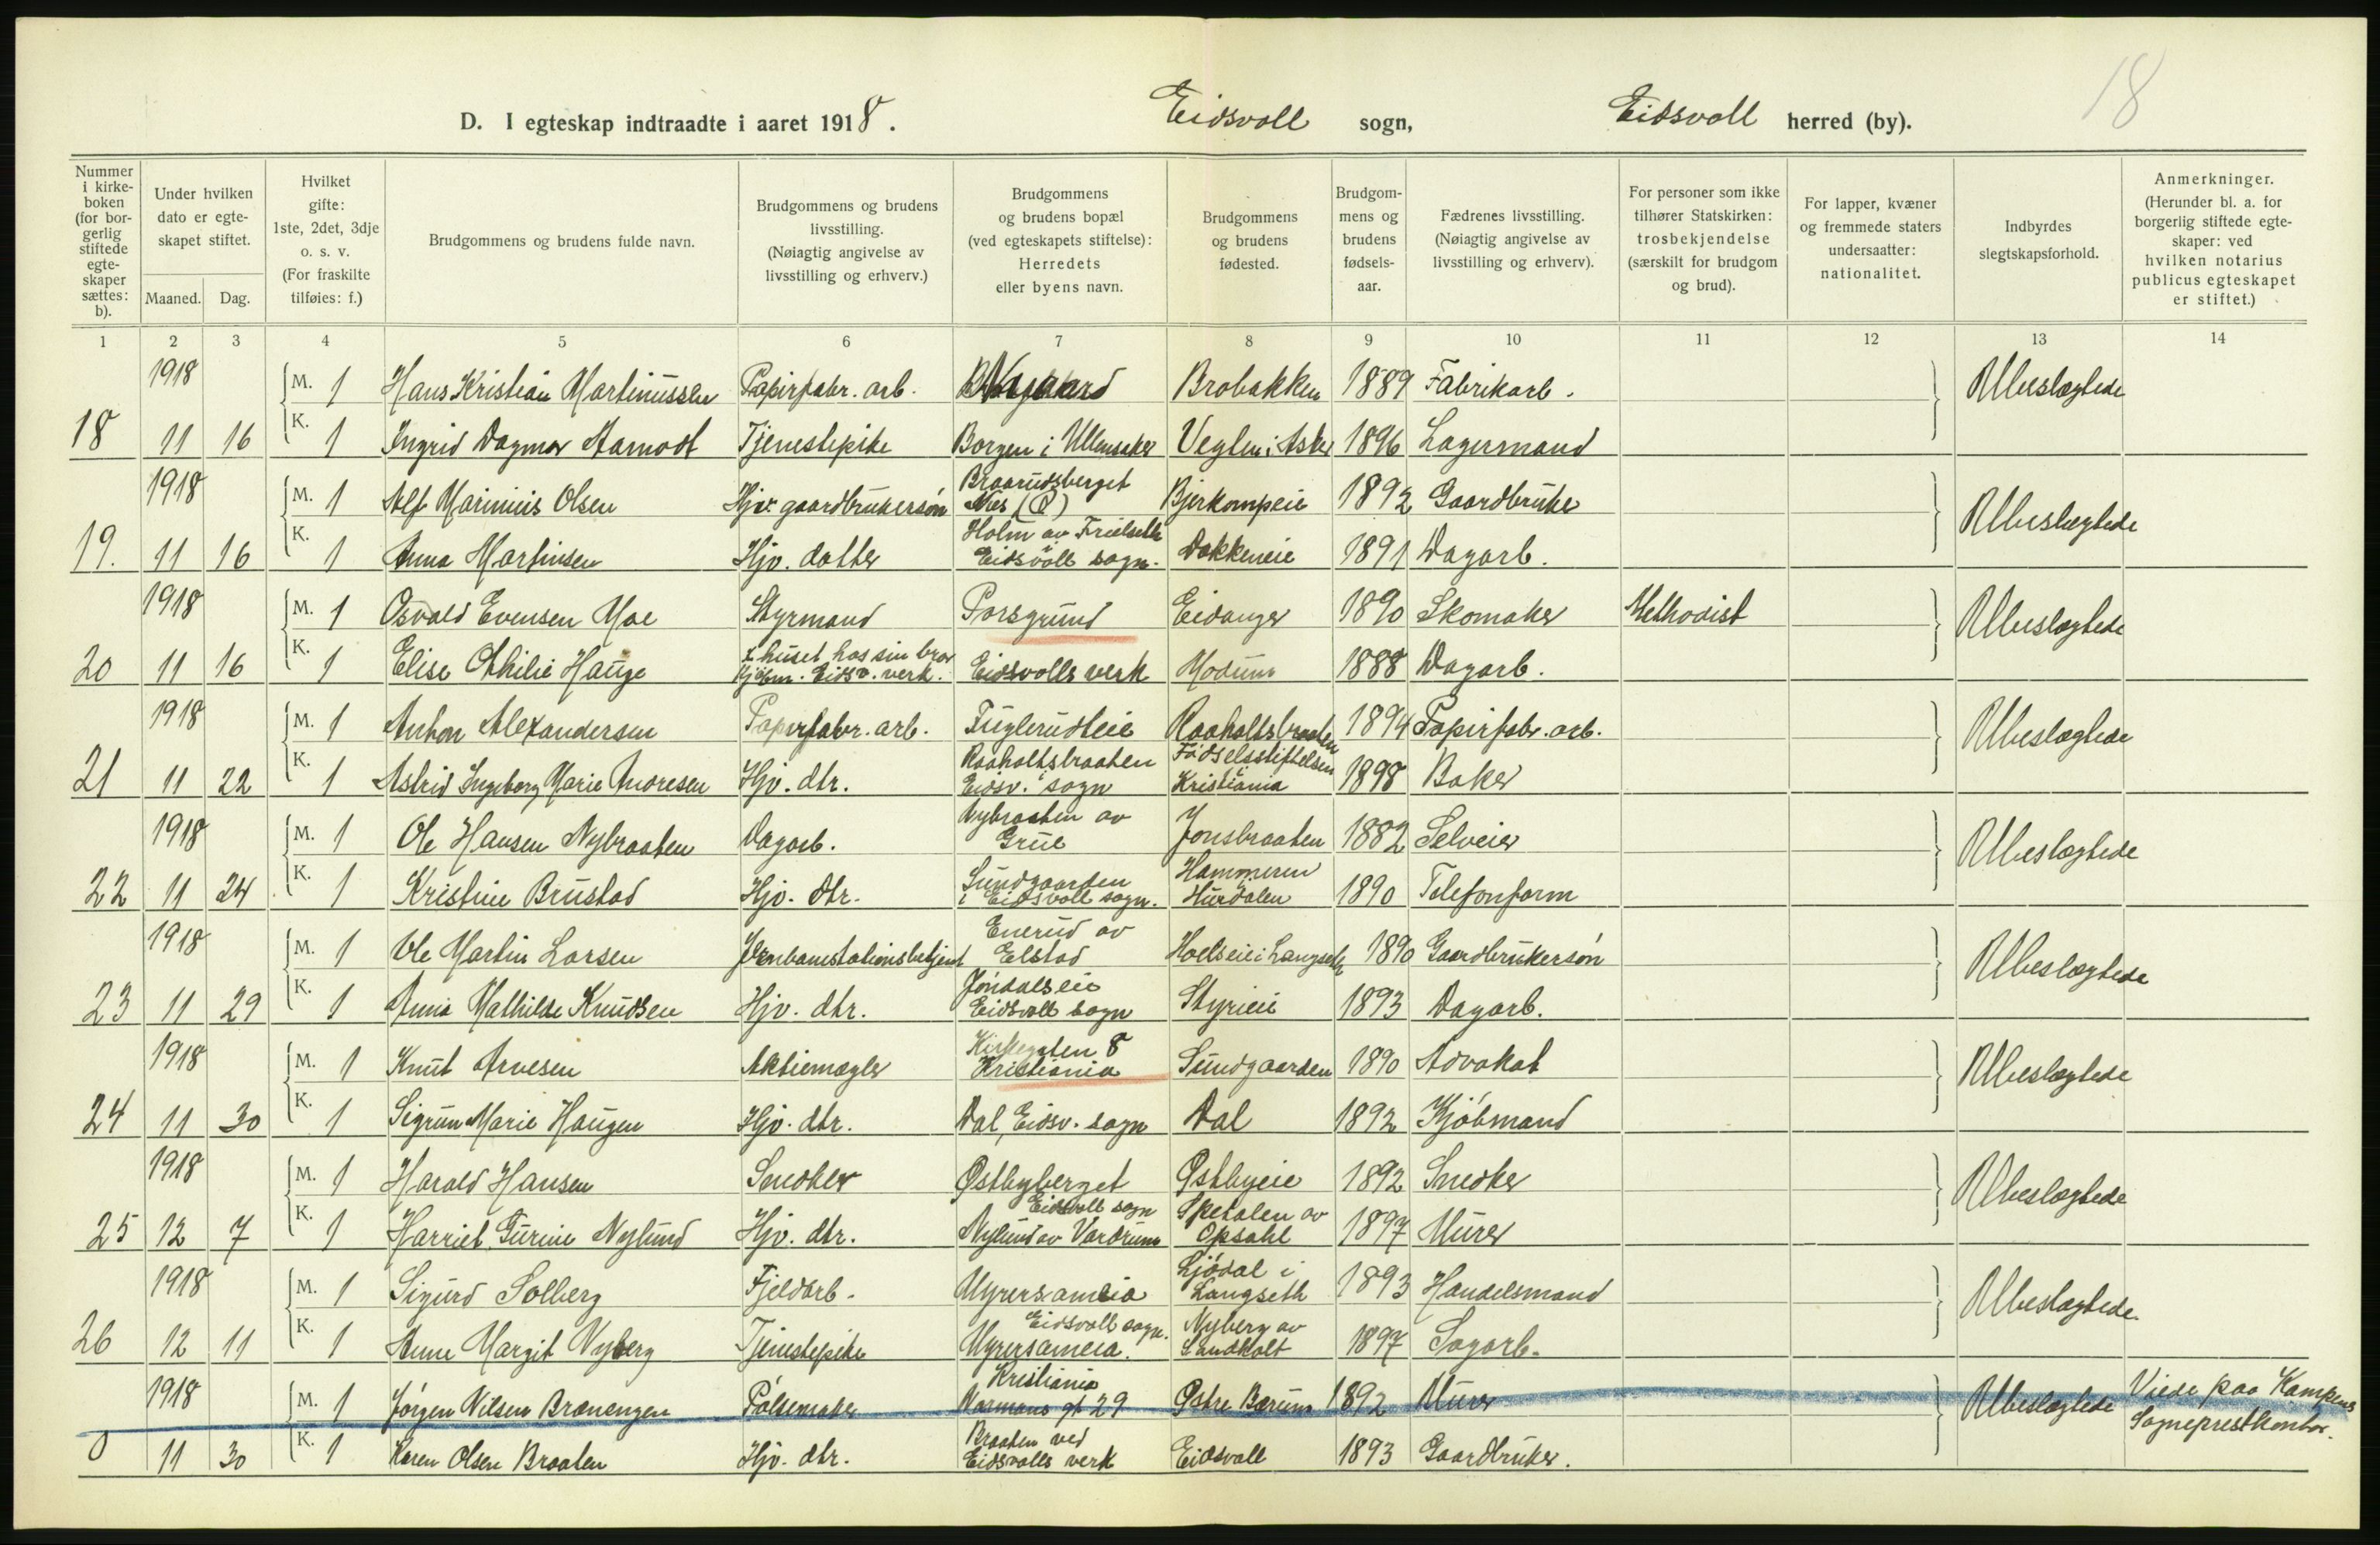 18
D. I egteskap indtraadte i aaret 1918. Eidsvoll sogn, Eidsvoll herred (by).
Nummer i kirke-boken (for bor-gerlig stiftede egte-skaper sættes: b).
Under hvilken dato er egte-skapet stiftet.
Maaned. Dag.
Hvilket gifte: 1ste, 2det, 3dje o. s. v. (For fraskilte tilføies: f.)
Brudgommens og brudens fulde navn.
Brudgommens og brudens livsstilling. (Nøiagtig angivelse av livsstilling og erhverv.)
Brudgommens og brudens bopæl (ved egteskapets stiftelse): Herredets eller byens navn.
Brudgommens og brudens fødested.
Brudgom-mens og brudens fødsels-aar.
Fædrenes livsstilling. (Nøiagtig angivelse av livsstilling og erhverv).
For personer som ikke tilhører Statskirken: trosbekjendelse (særskilt for brudgom og brud).
For lapper, kvæner og fremmede staters undersaatter: nationalitet.
Indbyrdes slegtskapsforhold.
Anmerkninger. (Herunder bl. a. for borgerlig stiftede egte-skaper: ved hvilken notarius publicus egteskapet er stiftet.)
1 2 3 4 5 6 7 8 9 10 11 12 13 14
1918 M. 1 Hans Kristian Martinussen Papirfabr. arb. Brobakken 1889 Fabrikarb. Ubeslægtede
18 11 16 K. 1 Ingrid Dagmar Aamodt Tjenestepike Borgen i Ullensaker Veglen i Asker 1896 Lagermand
1918 M. 1 Alf Marinius Olsen Hjv. gaardbrukersøn Braarudsberget Nes (R) Bjerkompeie 1892 Gaardbruker Ubeslægtede
19. 11 16 K. 1 Anna Martinsen Hjv. datter Holm av Eidsvoll sogn. Dokkeneie 1891 Dagarb.
1918 M. 1 Osvald Evensen Moe Styrmand Porsgrund Eidanger 1890 Skomaker Methodist Ubeslægtede
20 11 16 K. 1 Elise Othilie Hauge I huset hos sin bror Kjøbm. Eidsv. verk. Eidsvolls verk Modum 1888 Dagarb.
1918 M. 1 Anton Alexandersen Papirfabr. arb. Fuglerudeie Raaholtsbraaten 1894 Papirfabr. arb. Ubeslægtede
21 11 22 K. 1 Astrid Ingeborg Marie Andresen Hjv. dtr. Raaholtsbraaten Eidsv. sogn Fødselsstiftelsen i Kristiania 1898 Baker
1918 M. 1 Ole Hansen Nybraaten Dagarb. Nybraaten av Grue Jonsbraaten 1882 Selveier Ubeslægtede
22 11 24 K. 1 Kristine Brustad Hjv. dtr. Sundgaarden i Eidsvoll sogn. Hammeren Hurdalen 1890 Telefonform
1918 M. 1 Ole Martin Larsen Jernbanestationsbetjent Enerud av Elstad Hoelseie i Langseth 1890 Gaardbrukersøn Ubeslægtede
23 11 29 K. 1 Anna Mathilde Knudsen Hjv. dtr. Jøndalseie Eidsvoll sogn Styrieie 1893 Dagarb.
1918 M. 1 Knut Arvesen Aktiemægler Kirkegaten 8 Kristiania Sundgaarden 1890 Advokat Ubeslægtede
24 11 30 K. 1 Sigrun Marie Haugen Hjv. dtr. Dal, Eidsv. sogn Dal 1892 Kjøbmand
1918 M. 1 Harald Hansen Snedker Østbyberget Østbyeie 1892 Snedker Ubeslægtede
25 12 7 K. 1 Harriet Gurine Nylund Hjv. dtr. Eidsvoll sogn Nylund av Vardrum Spetalen av Opsahl 1897 Murer
1918 M. 1 Sigurd Solberg Fjeldarb. Myrersameia Ljødal i Langseth 1893 Handelsmand Ubeslægtede.
26 12 11 K. 1 Anne Margit Nyberg Tjenestepike Eidsvoll sogn. Myrersameia. Nyberg av Sandholt 1897 Sagarb.
1918 M. 1 Jørgen Nilsen Brænengen Pølsemaker Kristiania Normans gt 29 Østre Bærum 1892 Murer Ubeslægtede Viede paa Kampens Sogneprestkontor.
0 11 30 K. 1 Karen Olsen Braaten Hjv. dtr. Braaten ved Eidsvolls verk Eidsvoll 1893 Gaardbruker.